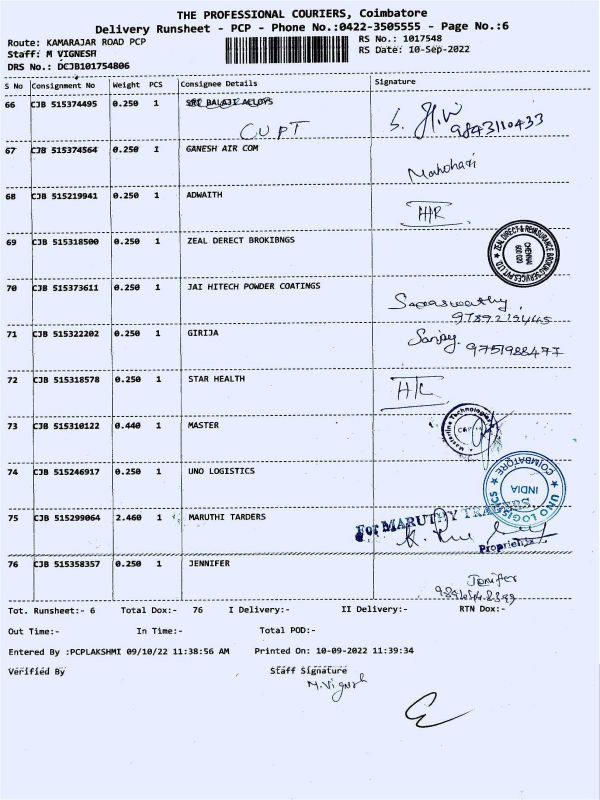 THE PROFESSIONAL COURIERS, Coimbatore
Delivery Runsheet - PCP - Phone No.:0422-3505555 - Page No.:6
Route: KAMARAJAR ROAD PCP RS No.: 1017548
Staff: M VIGNESH RS Date: 10-Sep-2022
DRS No.: DCJB101754806
S No Consignment No Weight PCS Consignee Details Signature
66 CJB 515374495 0.250 1 SRI BALAJI ALLOYS
CUPT 9843110433
67 CJB 515374564 0.250 1 GANESH AIR COM
Manohari
68 CJB 515219941 0.250 1 ADWAITH
H/R
69 CJB 515318500 0.250 1 ZEAL DERECT BROKIBNGS
ZEAL DIRECT & REINSURANCE BROKING SERVICES PVT. LTD. CHENNAI 600 020
70 CJB 515373611 0.250 1 JAI HITECH POWDER COATINGS
Saraswathy
71 CJB 515322202 0.250 1 GIRIJA Sanjay
9751988477
72 CJB 515318578 0.250 1 STAR HEALTH
73 CJB 515310122 0.440 1 MASTER
Masterline Technologies
74 CJB 515246917 0.250 1 UNO LOGISTICS
UNO LOGISTICS COIMBATORE INDIA
75 CJB 515299064 2.460 1 MARUTHI TARDERS For MARUTHY TRADERS
Proprietrix
76 CJB 515358357 0.250 1 JENNIFER
Jenifer
Tot. Runsheet:- 6 Total Dox:- 76 I Delivery:- II Delivery:- RTN Dox:-
Out Time:- In Time:- Total POD:-
Entered By :PCPLAKSHMI 09/10/22 11:38:56 AM Printed On: 10-09-2022 11:39:34
Verified By Staff Signature
M.Vignesh